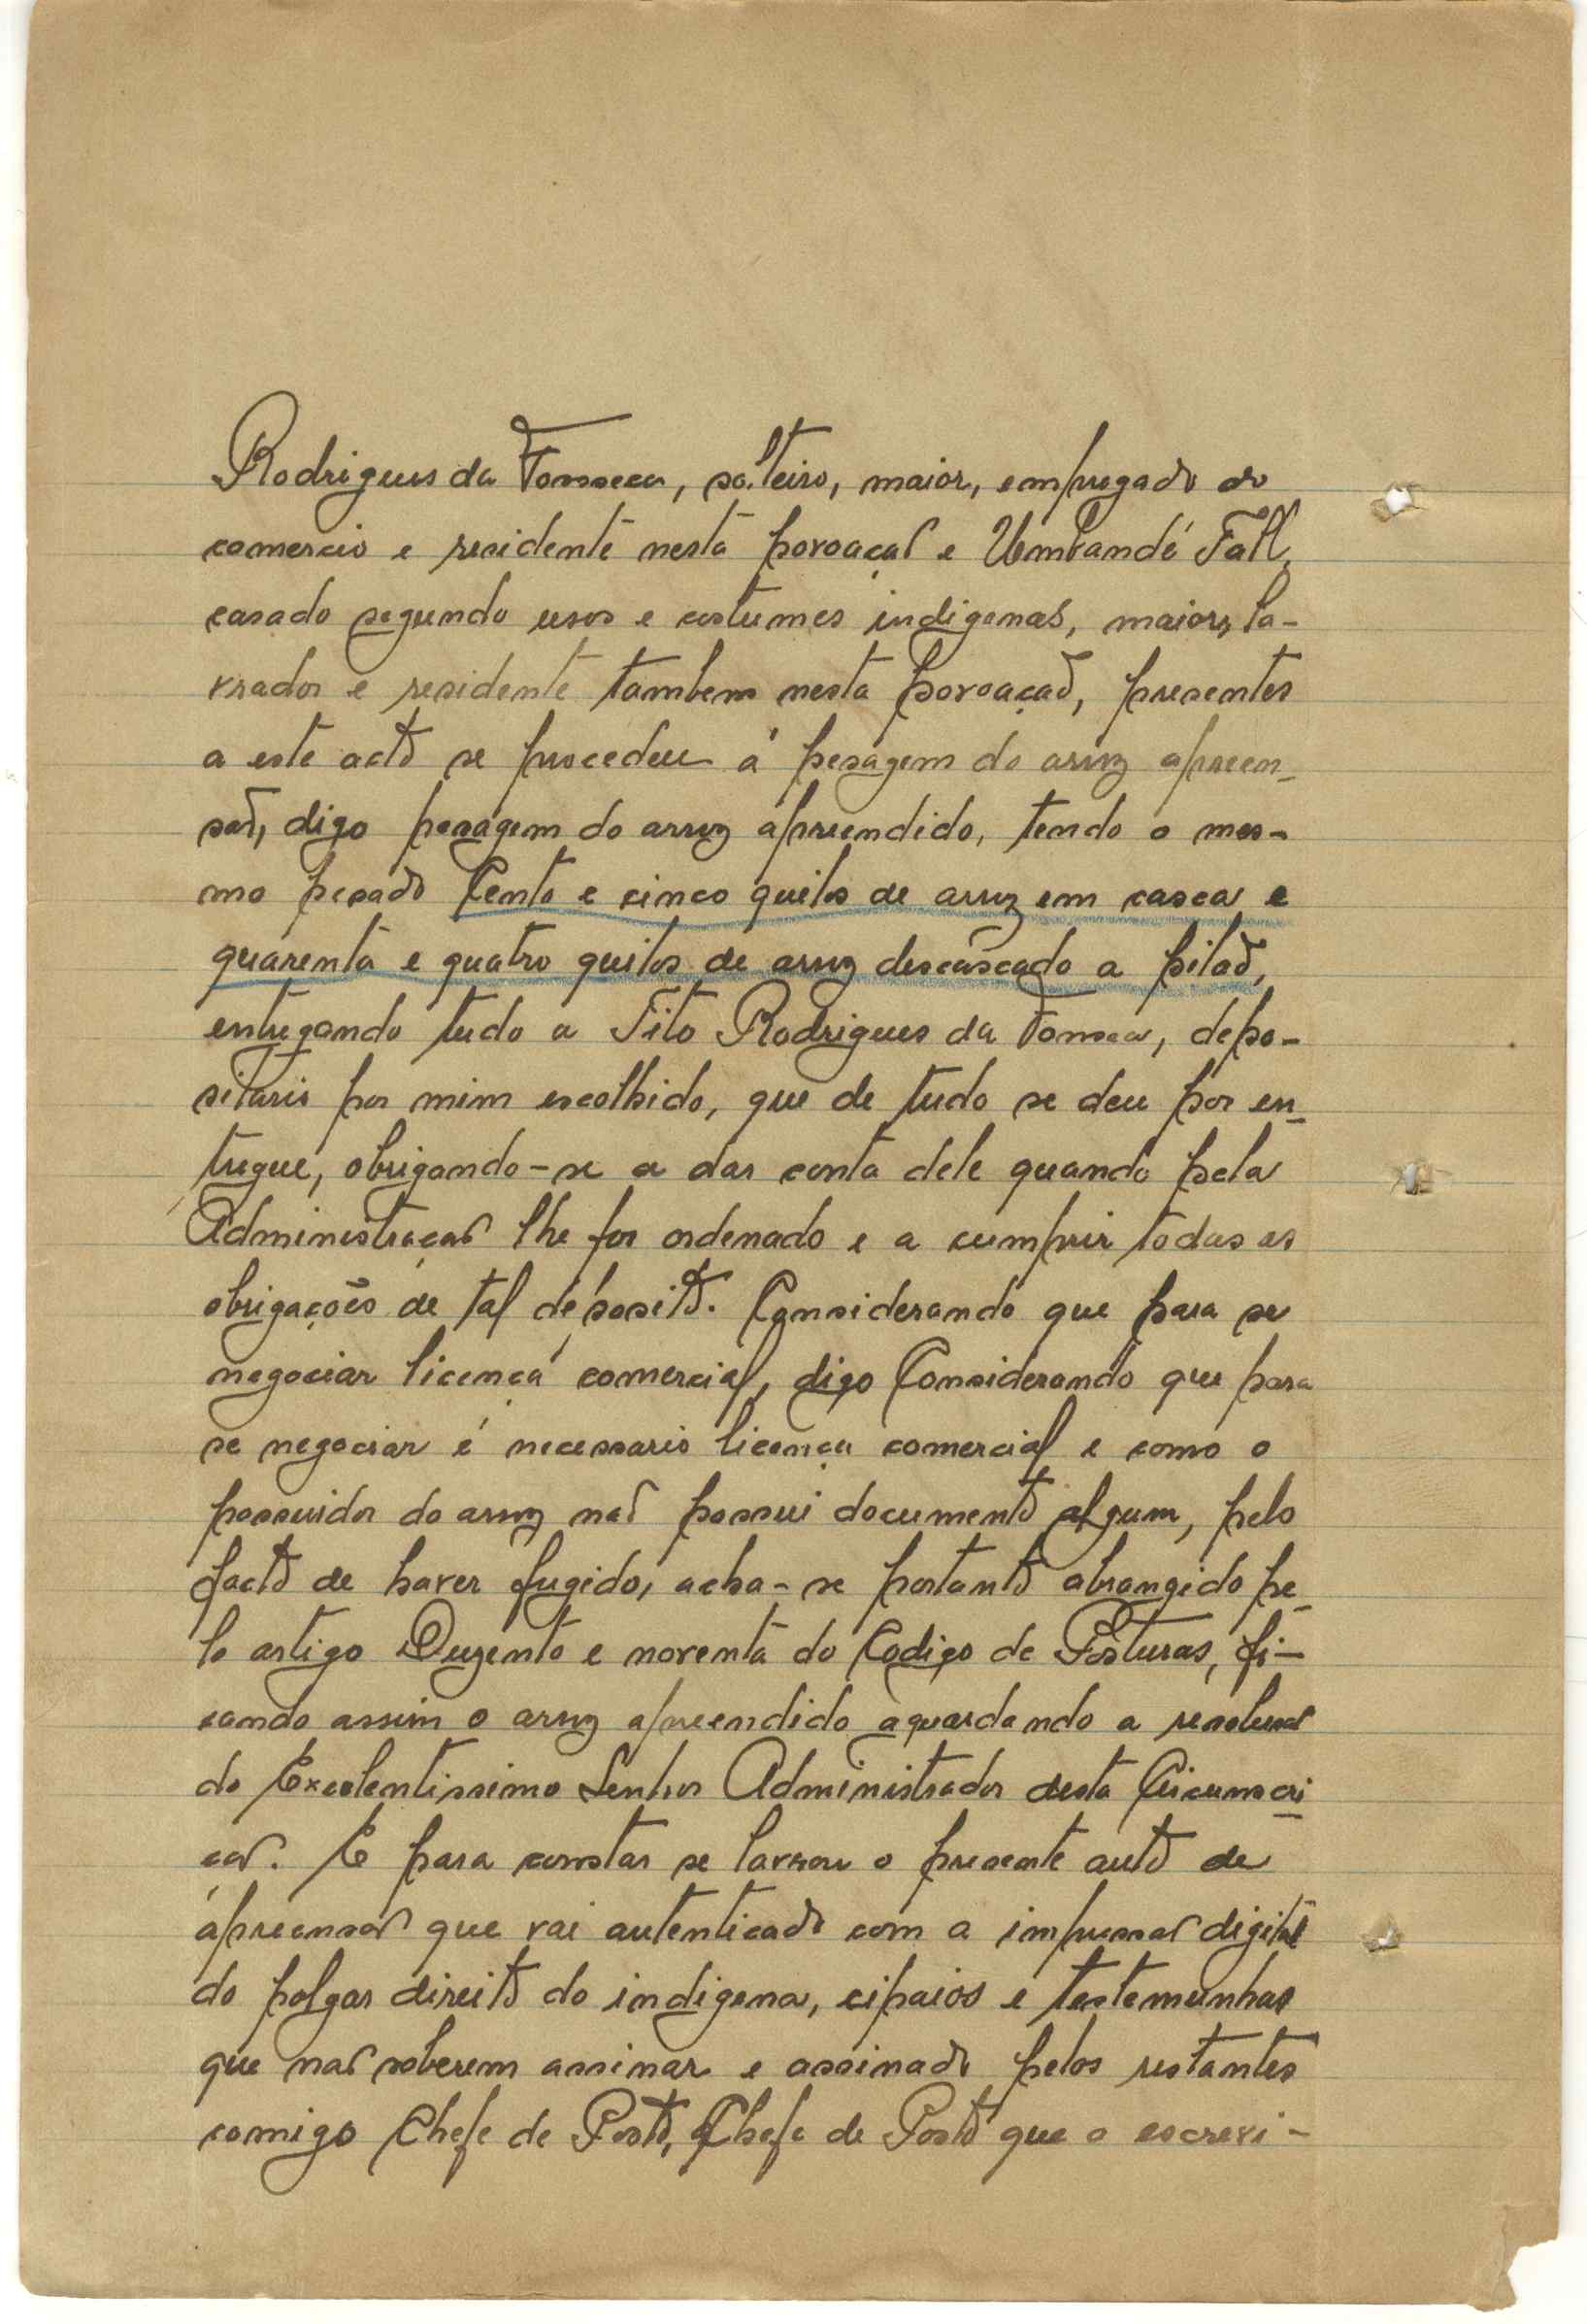 Rodrigues da Fonseca, solteiro, maior, empregado do
comercio e residente nesta povoaçaõ e Umbandé Fall,
casado segundo usos e costumes indigenas, maior, la-
vrador e residente tambem nesta povoaçaõ, presentes
a este acto se procedeu á pesagem do arroz apreen-
saõ, digo pesagem do arroz apreendido, tendo o mes-
mo pesado Cento e cinco quilos de arroz em casca e
quarenta e quatro quilos de arroz descascado a pilaõ,
entregando tudo a Tito Rodrigues da Fonseca, depo-
sitario por mim escolhido, que de tudo se deu por en-
tregue, obrigando-se a dar conta dele quando pela
Administraçaõ lhe for ordenado e a cumprir todas as
obrigações de tal deposito. Considerando que para se
negociar licença comercial, digo Considerando que para
se negociar é necessario licença comercial e como o
possuidor do arroz naõ possui documento algum, pelo
facto de haver fugido, acha-se portanto abrangido pe-
lo artigo Duzento e noventa do Codigo de Posturas, fi-
cando assim o arroz apreendido aguardando a resoluçaõ
do Excelentissimo Senhor Administrador desta Circunscri-
çaõ. E para constar se lavrou o presente auto de
apreensaõ que vai autenticado com a impressaõ digital
do polgar direito do indigena, cipaios e testemunhas
que naõ soberem assinar e assinado pelos restantes
comigo Chefe de Posto, Chefe de Posto que o escrevi-